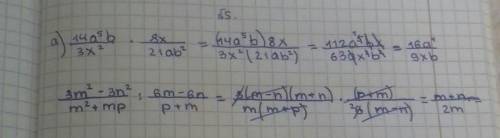 √5.
a) 14a⁵b/3x² · 8x/21ab² = (14a⁵b)8x/3x²(21ab²) = 112a⁵bx/63ax²b² = 16a⁴/9xb
3m² - 3n²/m² + mp : 6m - 6n/p + m = 3(m-n)(m+n)/m(m+p) · (p+m)/²6(m-n) = m+n/2m